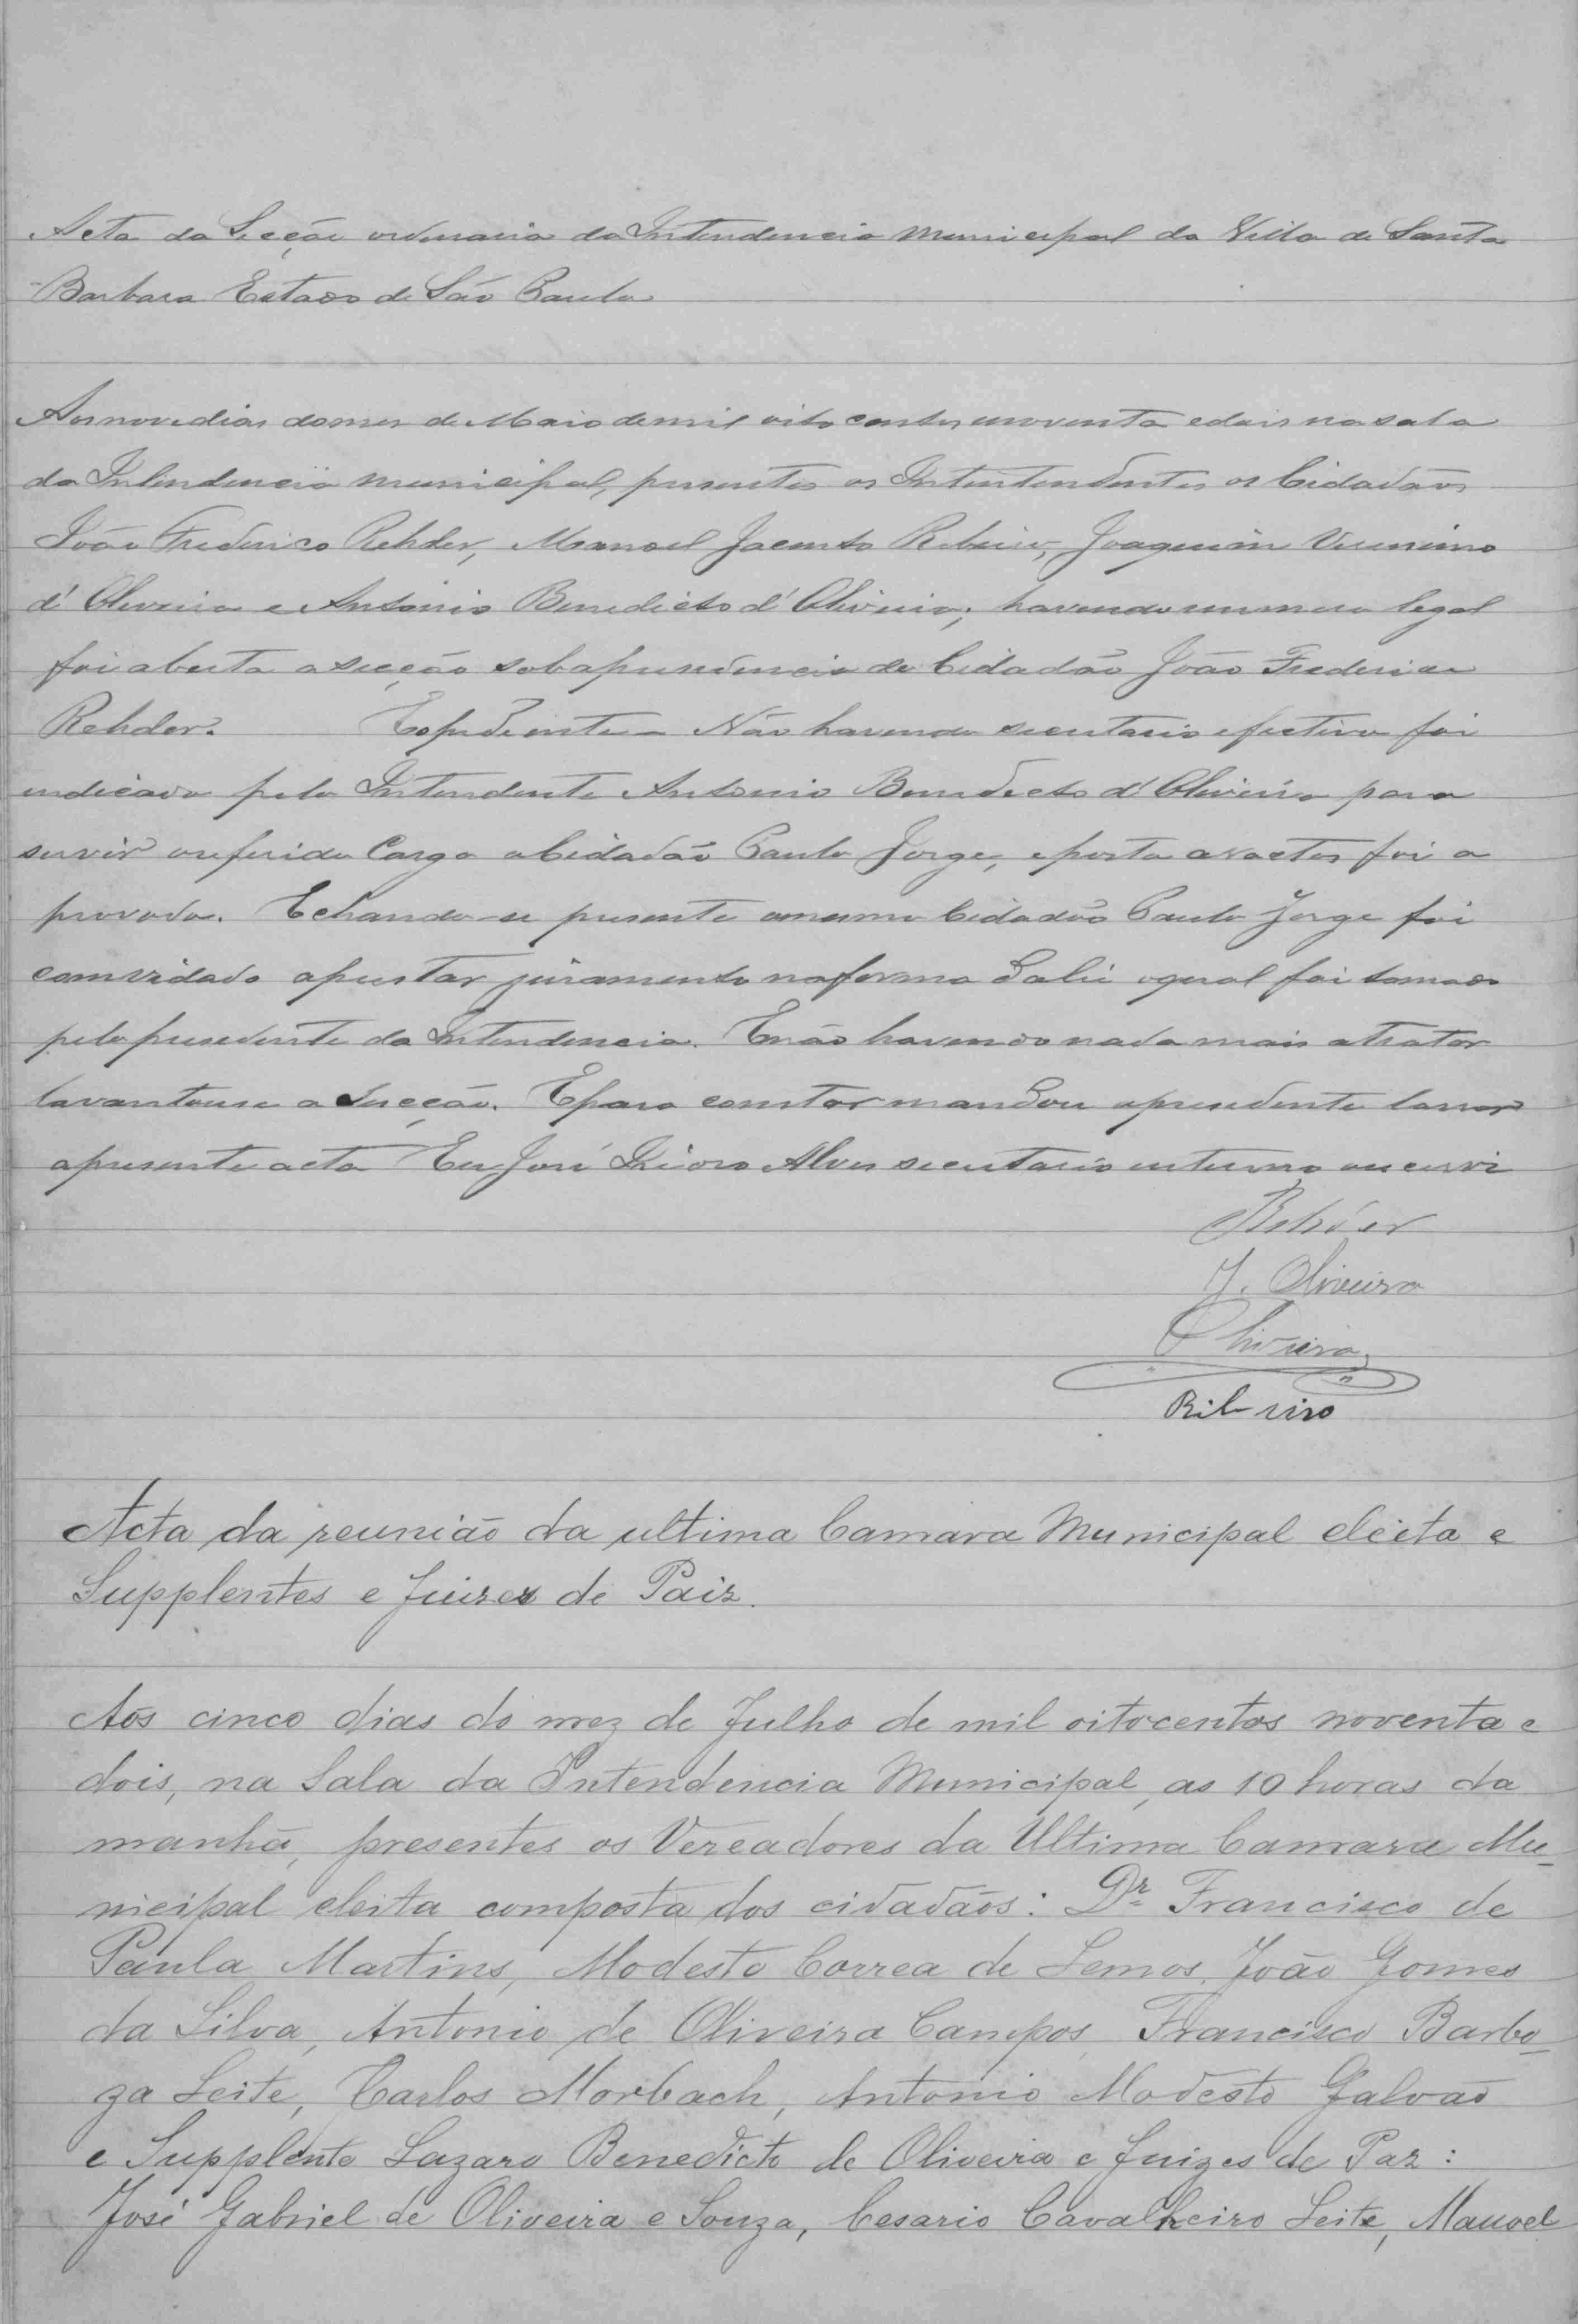 Acta da Secção ordenaria da Intendencia Municipal da Villa de Santa
Barbara Estado de São Paulo
Aos nove dias do mes de Maio de mil oito centos e noventa e dois na sala
da Intendencia municipal, presentes os Intentendentes os Cidadãos
João Frederico Rehder, Manoel Jacinto Ribeiro, Joaquim Verissimo
d'Oliveira e Antonio Benedicto d'Oliveira; havendo numero legal
foi aberta a secção sob a presidencia do Cidadão João Frederico
Rehder. Expediente – Não havendo secretario efectivo foi
indicado pelo Intendente Antonio Benedicto d'Oliveira para
servir o referido Cargo o Cidadão Paulo Jorge, e posto a voctos foi a
provado. Echando-se presente o mesmo Cidadão Paulo Jorge foi
comvidado a prestar juramento na forma da lei o qual foi tomado
pelo presedente da Intendencia. E não havendo nada mais a tratar
lavantouse a Secção. E para constar mandou o presedente lavrar
a presente acta Eu José Alves secretario interino o escrevi
Rehder
J. Oliveira
Oliveira
Ribeiro
Acta da reunião da ultima Camara Municipal eleita e
Supplentes e Juizes de Paiz.
Aos cinco dias do mez de Julho de mil oitocentos noventa e
dois, na Sala da Intendencia Municipal, as 10 horas da
manhã, presentes os Vereadores da Ultima Camara Mu-
nicipal eleita composta dos cidadãos: Dr. Francisco de
Paula Martins, Modesto Correa de Lemos, João Gomes
da Silva, Antonio de Oliveira Campos, Francisco Barbo-
za Leite, Carlos Morbach, Antonio Modesto Galvão
e Supplente Lazaro Benedicto de Oliveira e Juizes de Paz:
José Gabriel de Oliveira e Souza, Cesario Cavalheiro Leite, Manoel